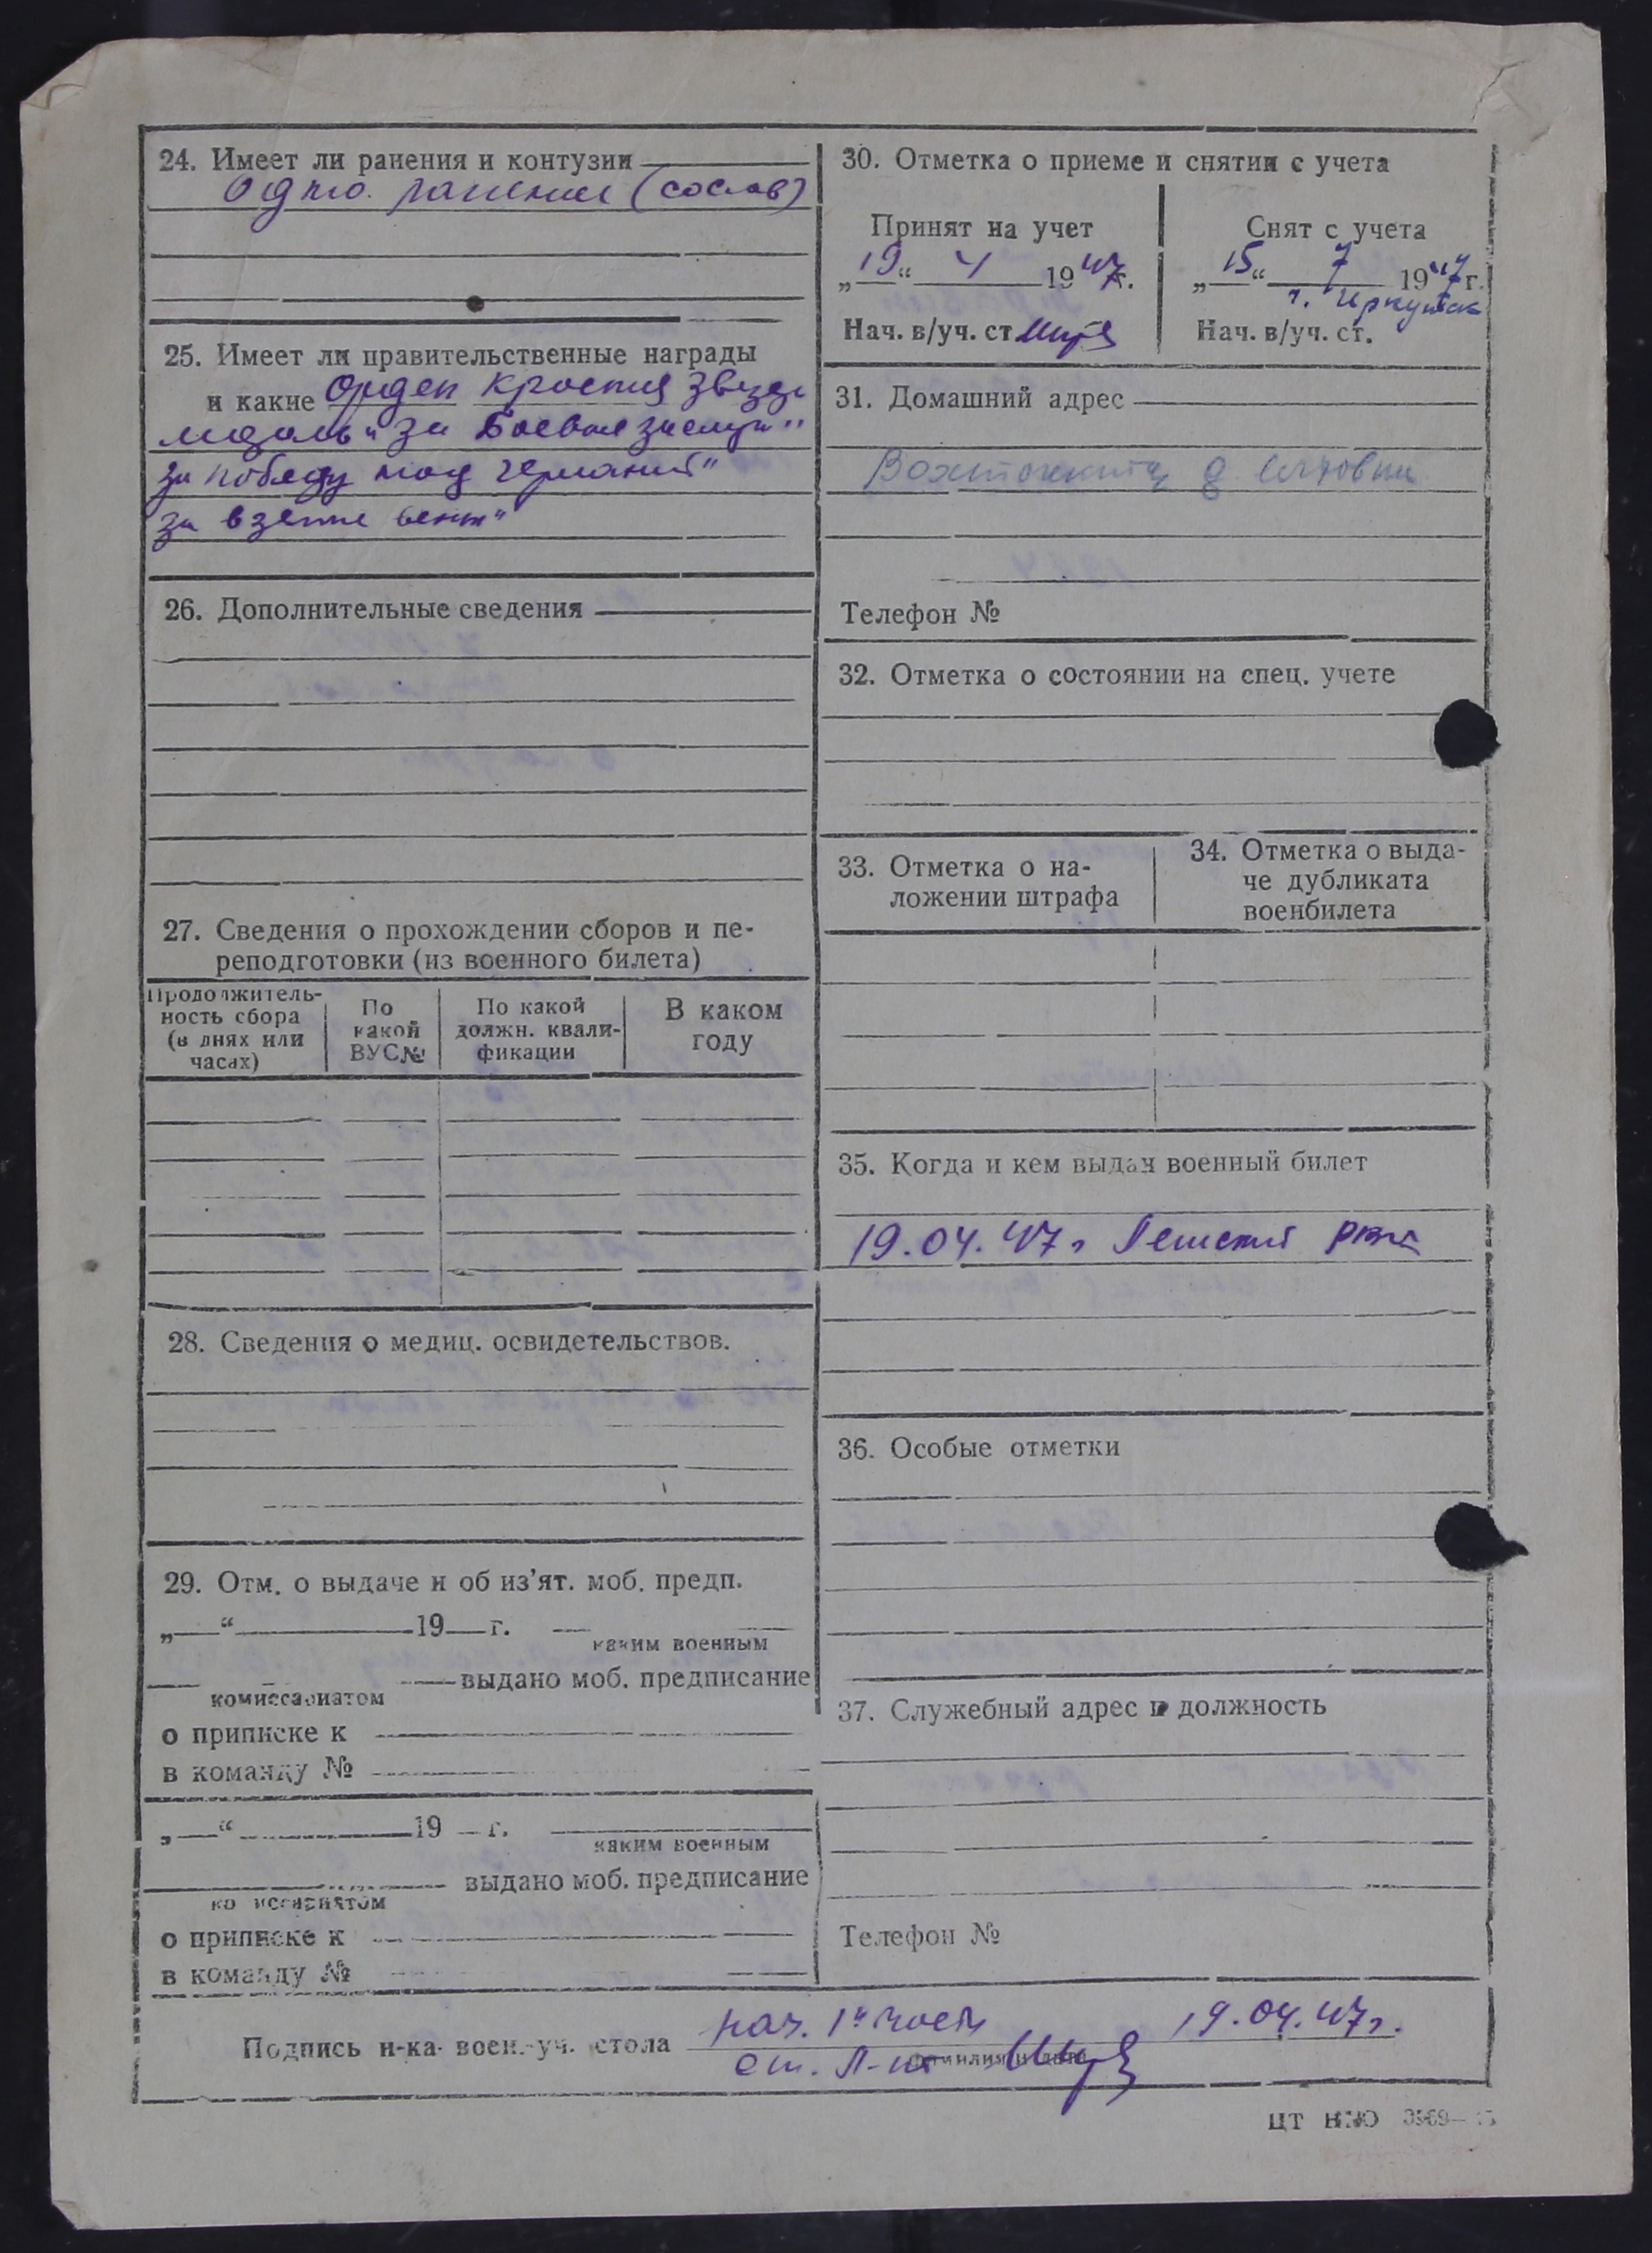 24. Имеет ли ранения и контузии
Одно. ранение (со слов)
25. Имеет ли правительственные награды
и какие Орден Красная Звезда
медаль "За Боевые заслуги"
за победу над Германией"
за взятие Вены"
26. Дополнительные сведения
27. Сведения о прохождении сборов и пе-
реподготовки (из военного билета)
Продолжитель-
ность сбора
(в днях или
часах)
По
какой
ВУС№
По какой
должн. квали-
фикации
В каком
году
28. Сведения о медиц. освидетельствов.
29. Отм. о выдаче и об из'ят. моб. предп.
„ “ 19 г.
каким военным
выдано моб. предписание
комиссариатом
о приписке к
в команду №
„ “ 19 г.
каким военным
выдано моб. предписание
комиссариатом
о приписке к
в команду №
30. Отметка о приеме и снятии с учета
Принят на учет
„19“ 4 1947г.
Нач. в/уч. ст.
Снят с учета
„15“ 7 1947г.
г. Иркутск
Нач. в/уч. ст.
31. Домашний адрес
Телефон №
32. Отметка о состоянии на спец. учете
33. Отметка о на-
ложении штрафа
34. Отметка о выда-
че дубликата
военбилета
35. Когда и кем выдан военный билет
19.04.47г РВК
36. Особые отметки
37. Служебный адрес и должность
Телефон №
Подпись н-ка воен.-уч. стола
нач. 1й части 19.04.47г.
ст. Л-нт
фамилия и дата
ЦТ НКО